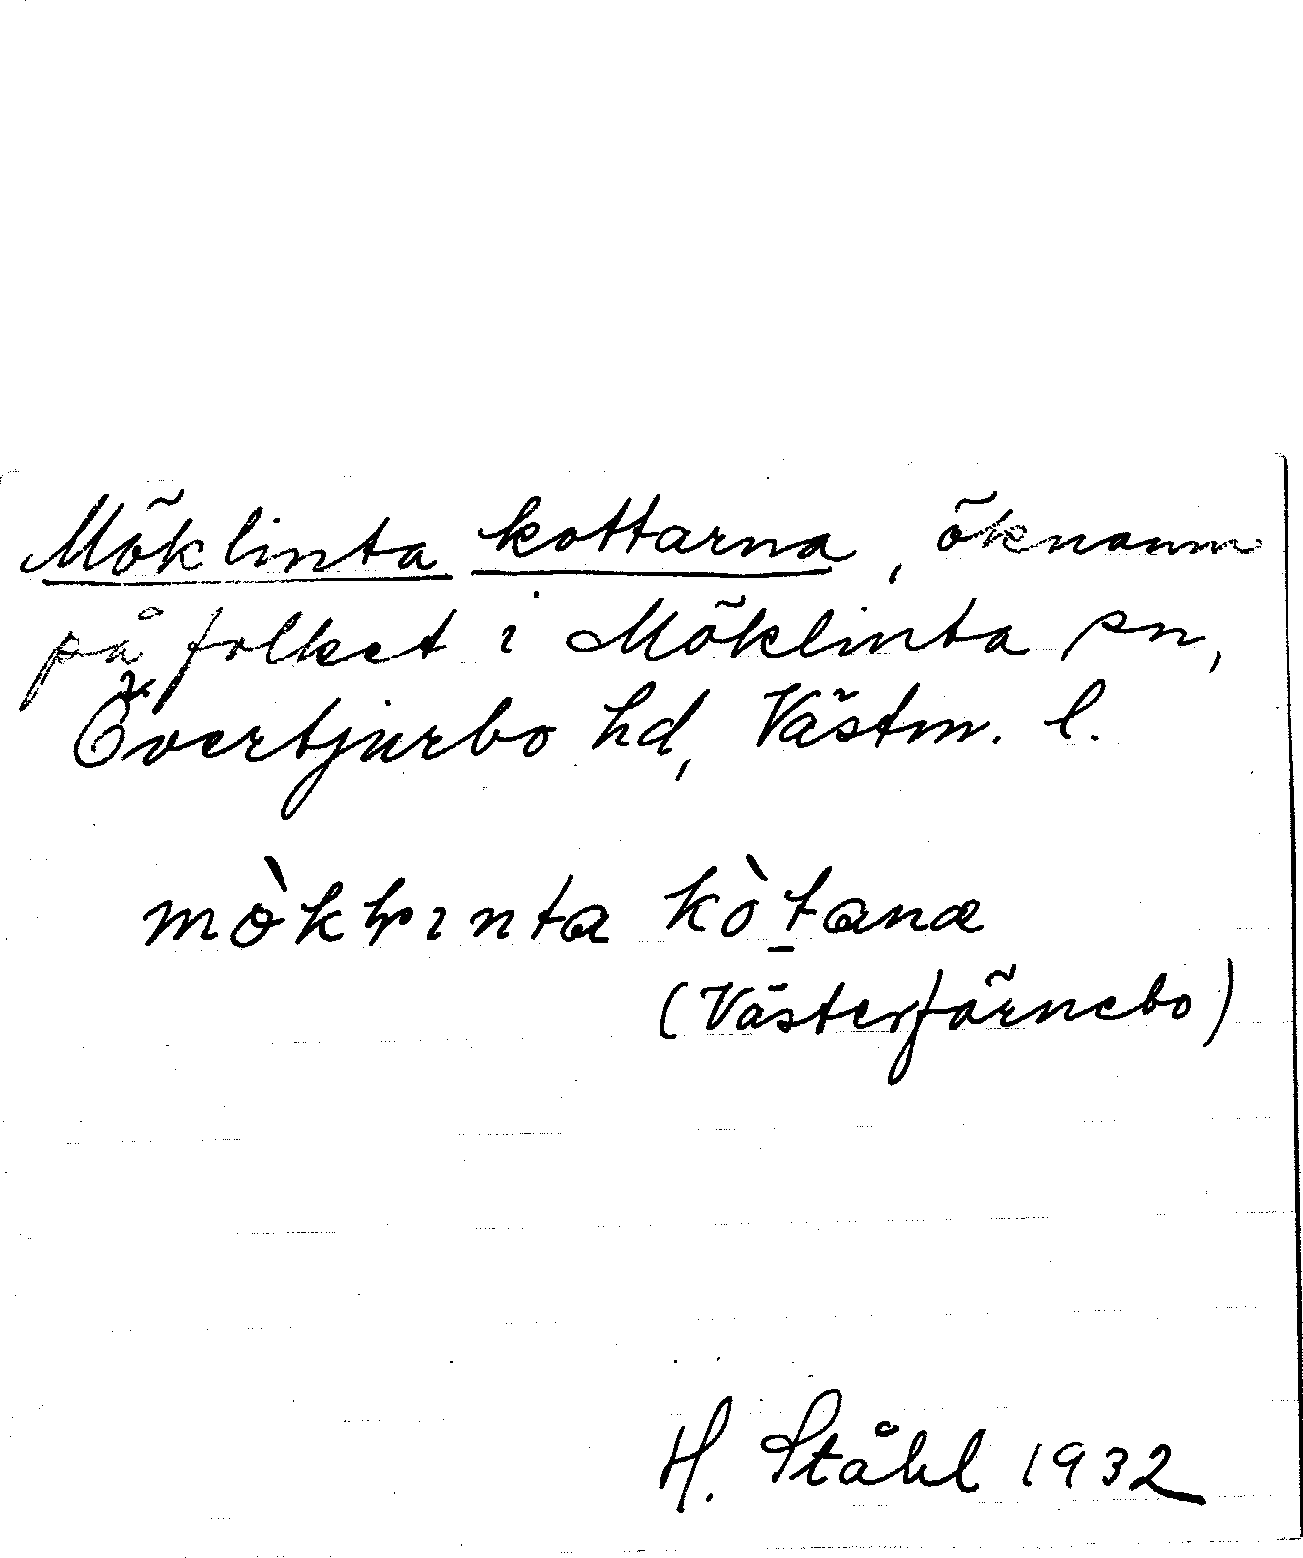 Möklinta kottarna, öknamn
på folket i Möklinta sn,
Övertjurbo hd, Västm. l.
kòtana
(Västerfärnebo)
H. Ståhl 1932